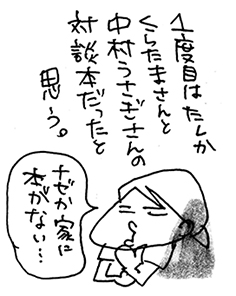 1度目はたしか
くらたまさんと
中村うさぎさんの
対談本だったと
思う。
ナゼか家に
本がない…